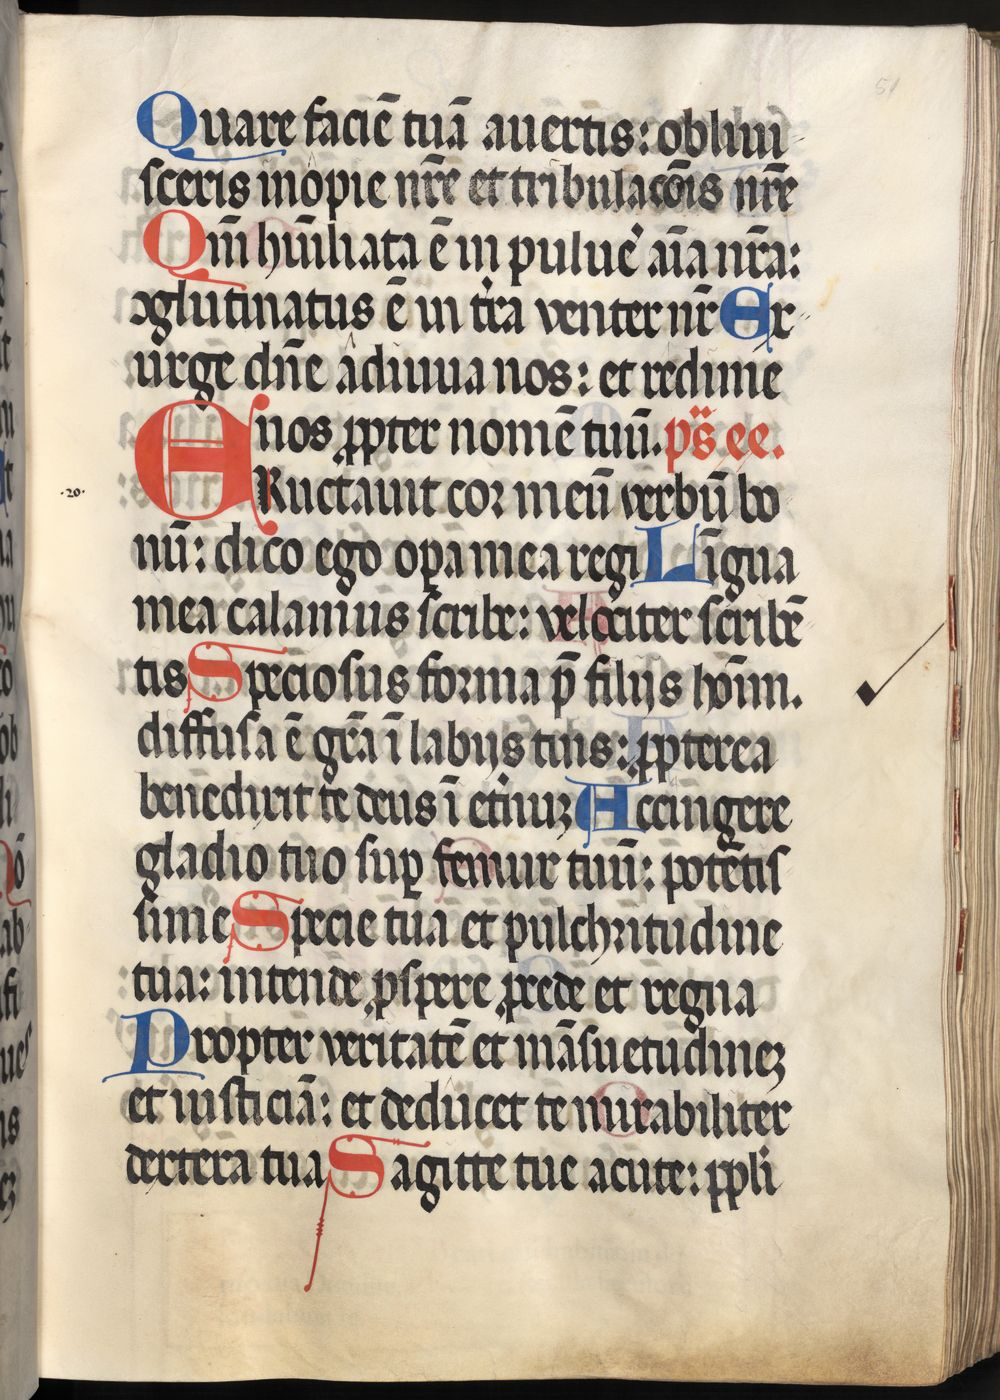 51
Quare faciē tuā auertis: obliui
sceris inopie nr̄e et tribulac̄ois nr̄e
Qm̄ hūiliata ē in pulue' aīa nr̄a:
ꝯglutinatus ē in t'ra venter nr̄ Ex
urge dn̄e adiuua nos: et redime
nos ꝓpter nomē tuū. ps̄ ee.
·20· ERuctauit cor meū verbū bo
nū: dico ego oꝑa mea regi Līgua
mea calamus scribe: velociter scribē
tis Speciosus forma p̄ filijs hoīm.
diffusa ē gr̄a ī labijs tuis: ꝓpterea
benedixit te deus ī et'nuꝫ Accingere
gladio tuo suꝑ femur tuū: potētis
sime Specie tua et pulchritudine
tua: intende ꝓspere ꝓcede et regna
Propter veritatē et māsuetudineꝫ
et iusticiā: et deducet te mirabiliter
dextera tua Sagitte tue acute: ppli